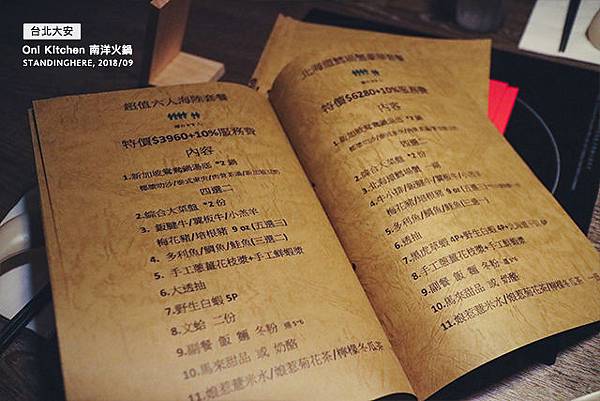 台北大安
Oni Kitchen 南洋火鍋
STANDINGHERE, 2018/09
超值六人海陸套餐
特價$3960+10%服務費
內容
1.新加坡鴛鴦鍋湯底 *2 鍋
四選二
2.綜合大菜盤 *2 份
3. 鈑腱牛/翼板牛/小羔羊
梅花豬/培根豬 9 oz(五選三)
4. 多利魚/鯛魚/鮭魚(三選二)
5. 手工蔥薑花枝漿+手工鮮蝦漿
6.大透抽
7.野生白蝦 5P
8.文蛤 二份
9.副餐 飯 麵 冬粉
10.馬來甜品 或 奶酪
11.娘惹薏米水/娘惹菊花茶/檸檬冬瓜茶
特價$6280+10%服務費
內容
1.新加坡鴛鴦鍋湯底 *2 鍋
四選二
2.綜合大菜盤 *2份
3.北海道鱈場蟹 一鍋
4.牛小排/鈑腱牛/翼板牛/小羔羊
梅花豬/培根豬 9 oz
5.多利魚/鯛魚/鮭魚(三選二)
6.透抽
7.黑虎草蝦 4P+野生白蝦 4P+
8.手工蔥薑花枝漿+手工鮮蝦漿
9.副餐 飯 麵 冬粉
10.馬來甜品 或 奶酪
11.娘惹薏米水/娘惹菊花茶/檸檬冬瓜茶